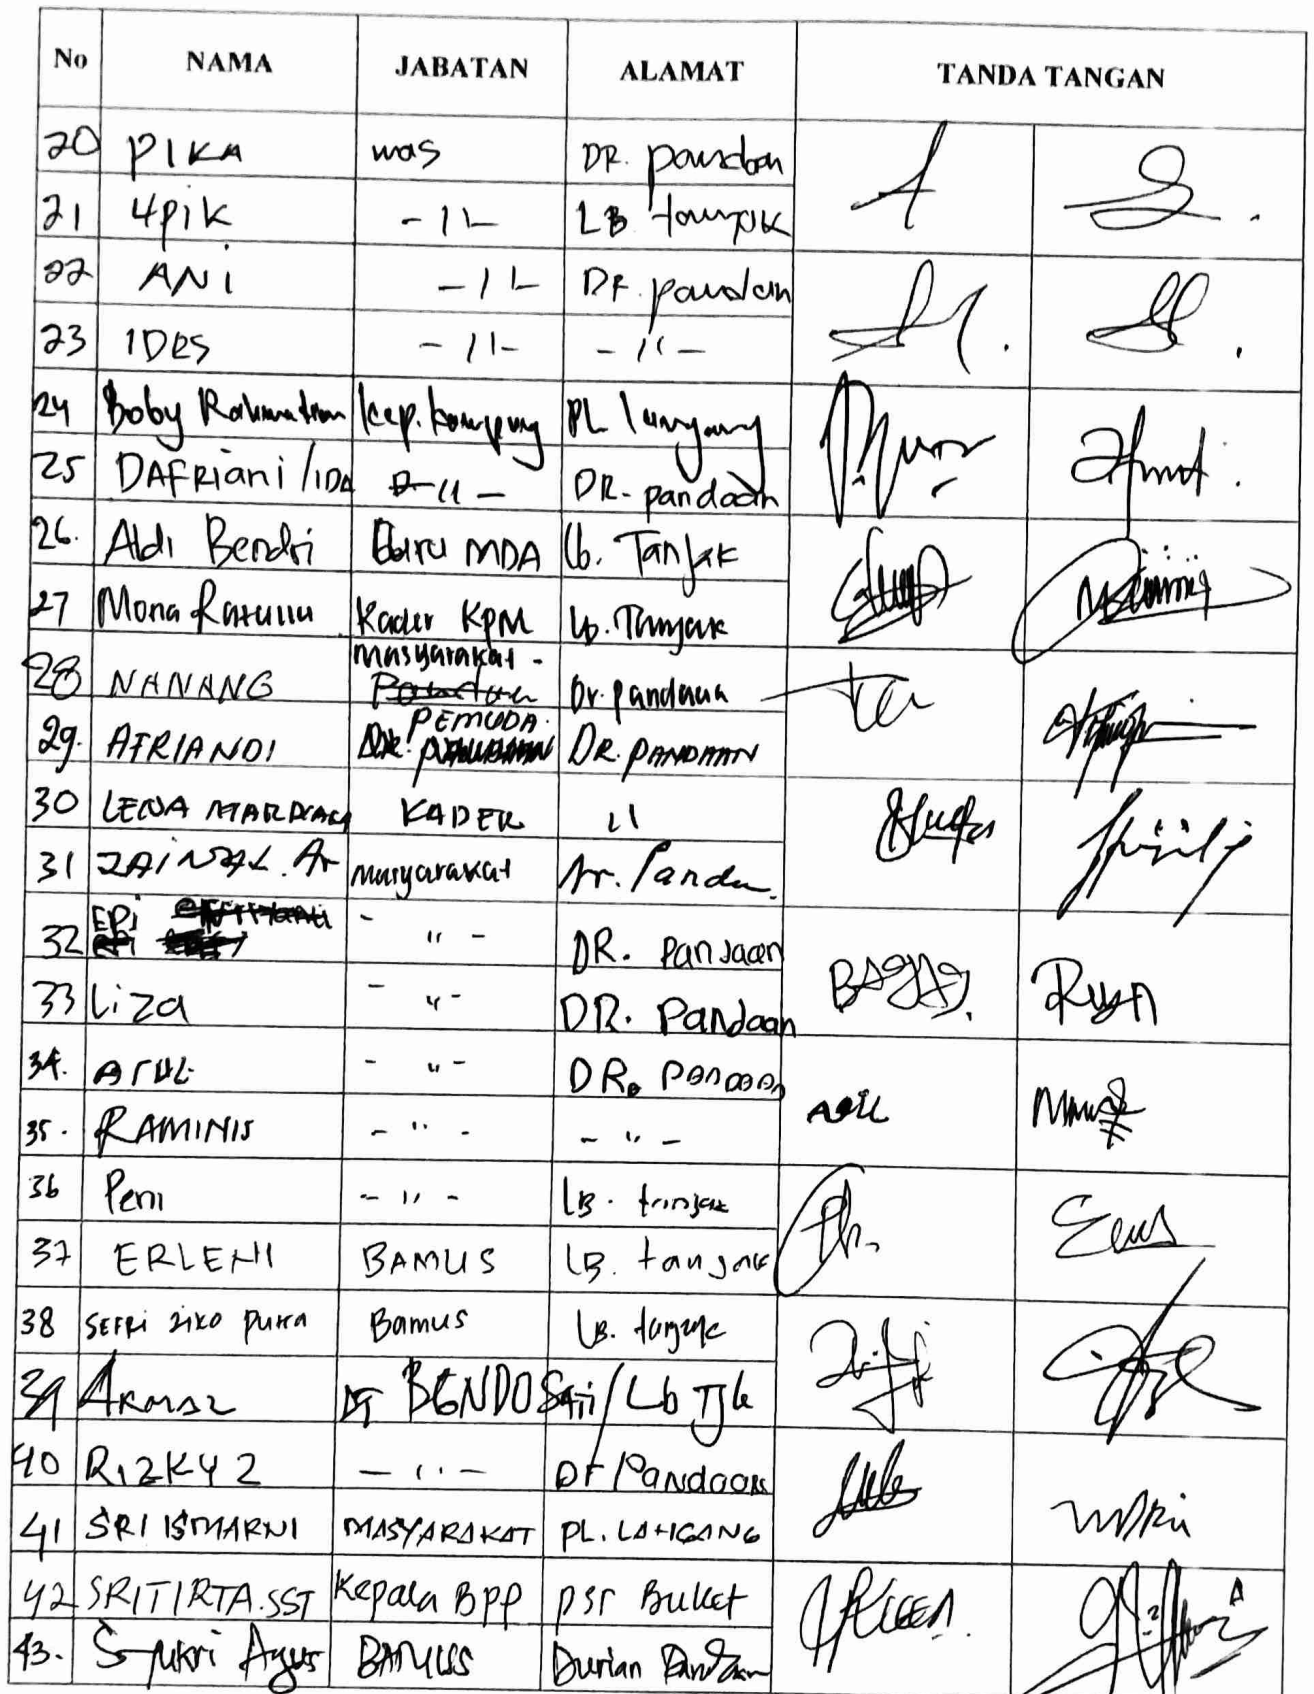 No NAMA JABATAN ALAMAT TANDA TANGAN
20 PIKA was DR. pandan
21 4pik - 11 - LB tanjak
22 ANI - 11 - DR. pandan
23 IDES - 11 - - 11 -
24 Boby Rahmatian kep. kampung PL lungang
25 DAFRiani / IDA - 11 - DR. pandaan
26. Aldi Bendri Guru MDA Lb. Tanjak
27 Mona Kader KPM Lb. Tanjak
28 NANANG masyarakat - Dr. pandaan
29. AFRIANDI PEMUDA. DR. PANDAAN
30 LENA MARDIANI KADER 11
31 ZAINAL. Ar masyarakat Dr. Pandan
32 EPi - " - DR. Pandaan
33 Liza - " - DR. Pandaan
34. ATUL - " - DR. PANDAAN
35. RAMINIS - " - - " -
36 Peni - " - LB. tanjak
37 ERLENI BAMUS LB. tanjak
38 SEFRi ziko putra Bamus LB. tanjak
39 Akmal BENDO Sati / Lb Tjk
40 RIZKY Z - " - DR Pandaan
41 SRI ISMARNI MASYARAKAT PL. LAHGANG
42 SRITIRTA.SST Kepala BPP psr Buket
43. Syukri Agus BAMUSS Durian Pandaan